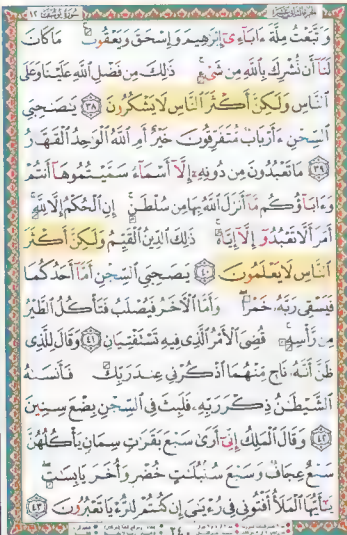 سورة يوسف ١٢
وَٱتَّبَعْتُ مِلَّةَ ءَابَآءِىٓ إِبْرَٰهِيمَ وَإِسْحَٰقَ وَيَعْقُوبَ مَا كَانَ
لَنَآ أَن نُّشْرِكَ بِٱللَّهِ مِن شَىْءٍ ذَٰلِكَ مِن فَضْلِ ٱللَّهِ عَلَيْنَا وَعَلَى
ٱلنَّاسِ وَلَٰكِنَّ أَكْثَرَ ٱلنَّاسِ لَا يَشْكُرُونَ ٣٨ يَٰصَٰحِبَىِ
ٱلسِّجْنِ ءَأَرْبَابٌ مُّتَفَرِّقُونَ خَيْرٌ أَمِ ٱللَّهُ ٱلْوَٰحِدُ ٱلْقَهَّارُ
٣٩ مَا تَعْبُدُونَ مِن دُونِهِۦٓ إِلَّآ أَسْمَآءً سَمَّيْتُمُوهَآ أَنتُمْ
وَءَابَآؤُكُم مَّآ أَنزَلَ ٱللَّهُ بِهَا مِن سُلْطَٰنٍ إِنِ ٱلْحُكْمُ إِلَّا لِلَّهِ
أَمَرَ أَلَّا تَعْبُدُوٓا۟ إِلَّآ إِيَّاهُ ذَٰلِكَ ٱلدِّينُ ٱلْقَيِّمُ وَلَٰكِنَّ أَكْثَرَ
ٱلنَّاسِ لَا يَعْلَمُونَ ٤٠ يَٰصَٰحِبَىِ ٱلسِّجْنِ أَمَّآ أَحَدُكُمَا
فَيَسْقِى رَبَّهُۥ خَمْرًا وَأَمَّا ٱلْءَاخَرُ فَيُصْلَبُ فَتَأْكُلُ ٱلطَّيْرُ
مِن رَّأْسِهِۦ قُضِىَ ٱلْأَمْرُ ٱلَّذِى فِيهِ تَسْتَفْتِيَانِ ٤١ وَقَالَ لِلَّذِى
ظَنَّ أَنَّهُۥ نَاجٍ مِّنْهُمَا ٱذْكُرْنِى عِندَ رَبِّكَ فَأَنسَىٰهُ
ٱلشَّيْطَٰنُ ذِكْرَ رَبِّهِۦ فَلَبِثَ فِى ٱلسِّجْنِ بِضْعَ سِنِينَ
٤٢ وَقَالَ ٱلْمَلِكُ إِنِّىٓ أَرَىٰ سَبْعَ بَقَرَٰتٍ سِمَانٍ يَأْكُلُهُنَّ
سَبْعٌ عِجَافٌ وَسَبْعَ سُنۢبُلَٰتٍ خُضْرٍ وَأُخَرَ يَابِسَٰتٍ
يَٰٓأَيُّهَا ٱلْمَلَأُ أَفْتُونِى فِى رُءْيَٰىَ إِن كُنتُمْ لِلرُّءْيَا تَعْبُرُونَ ٤٣
٢٤٠